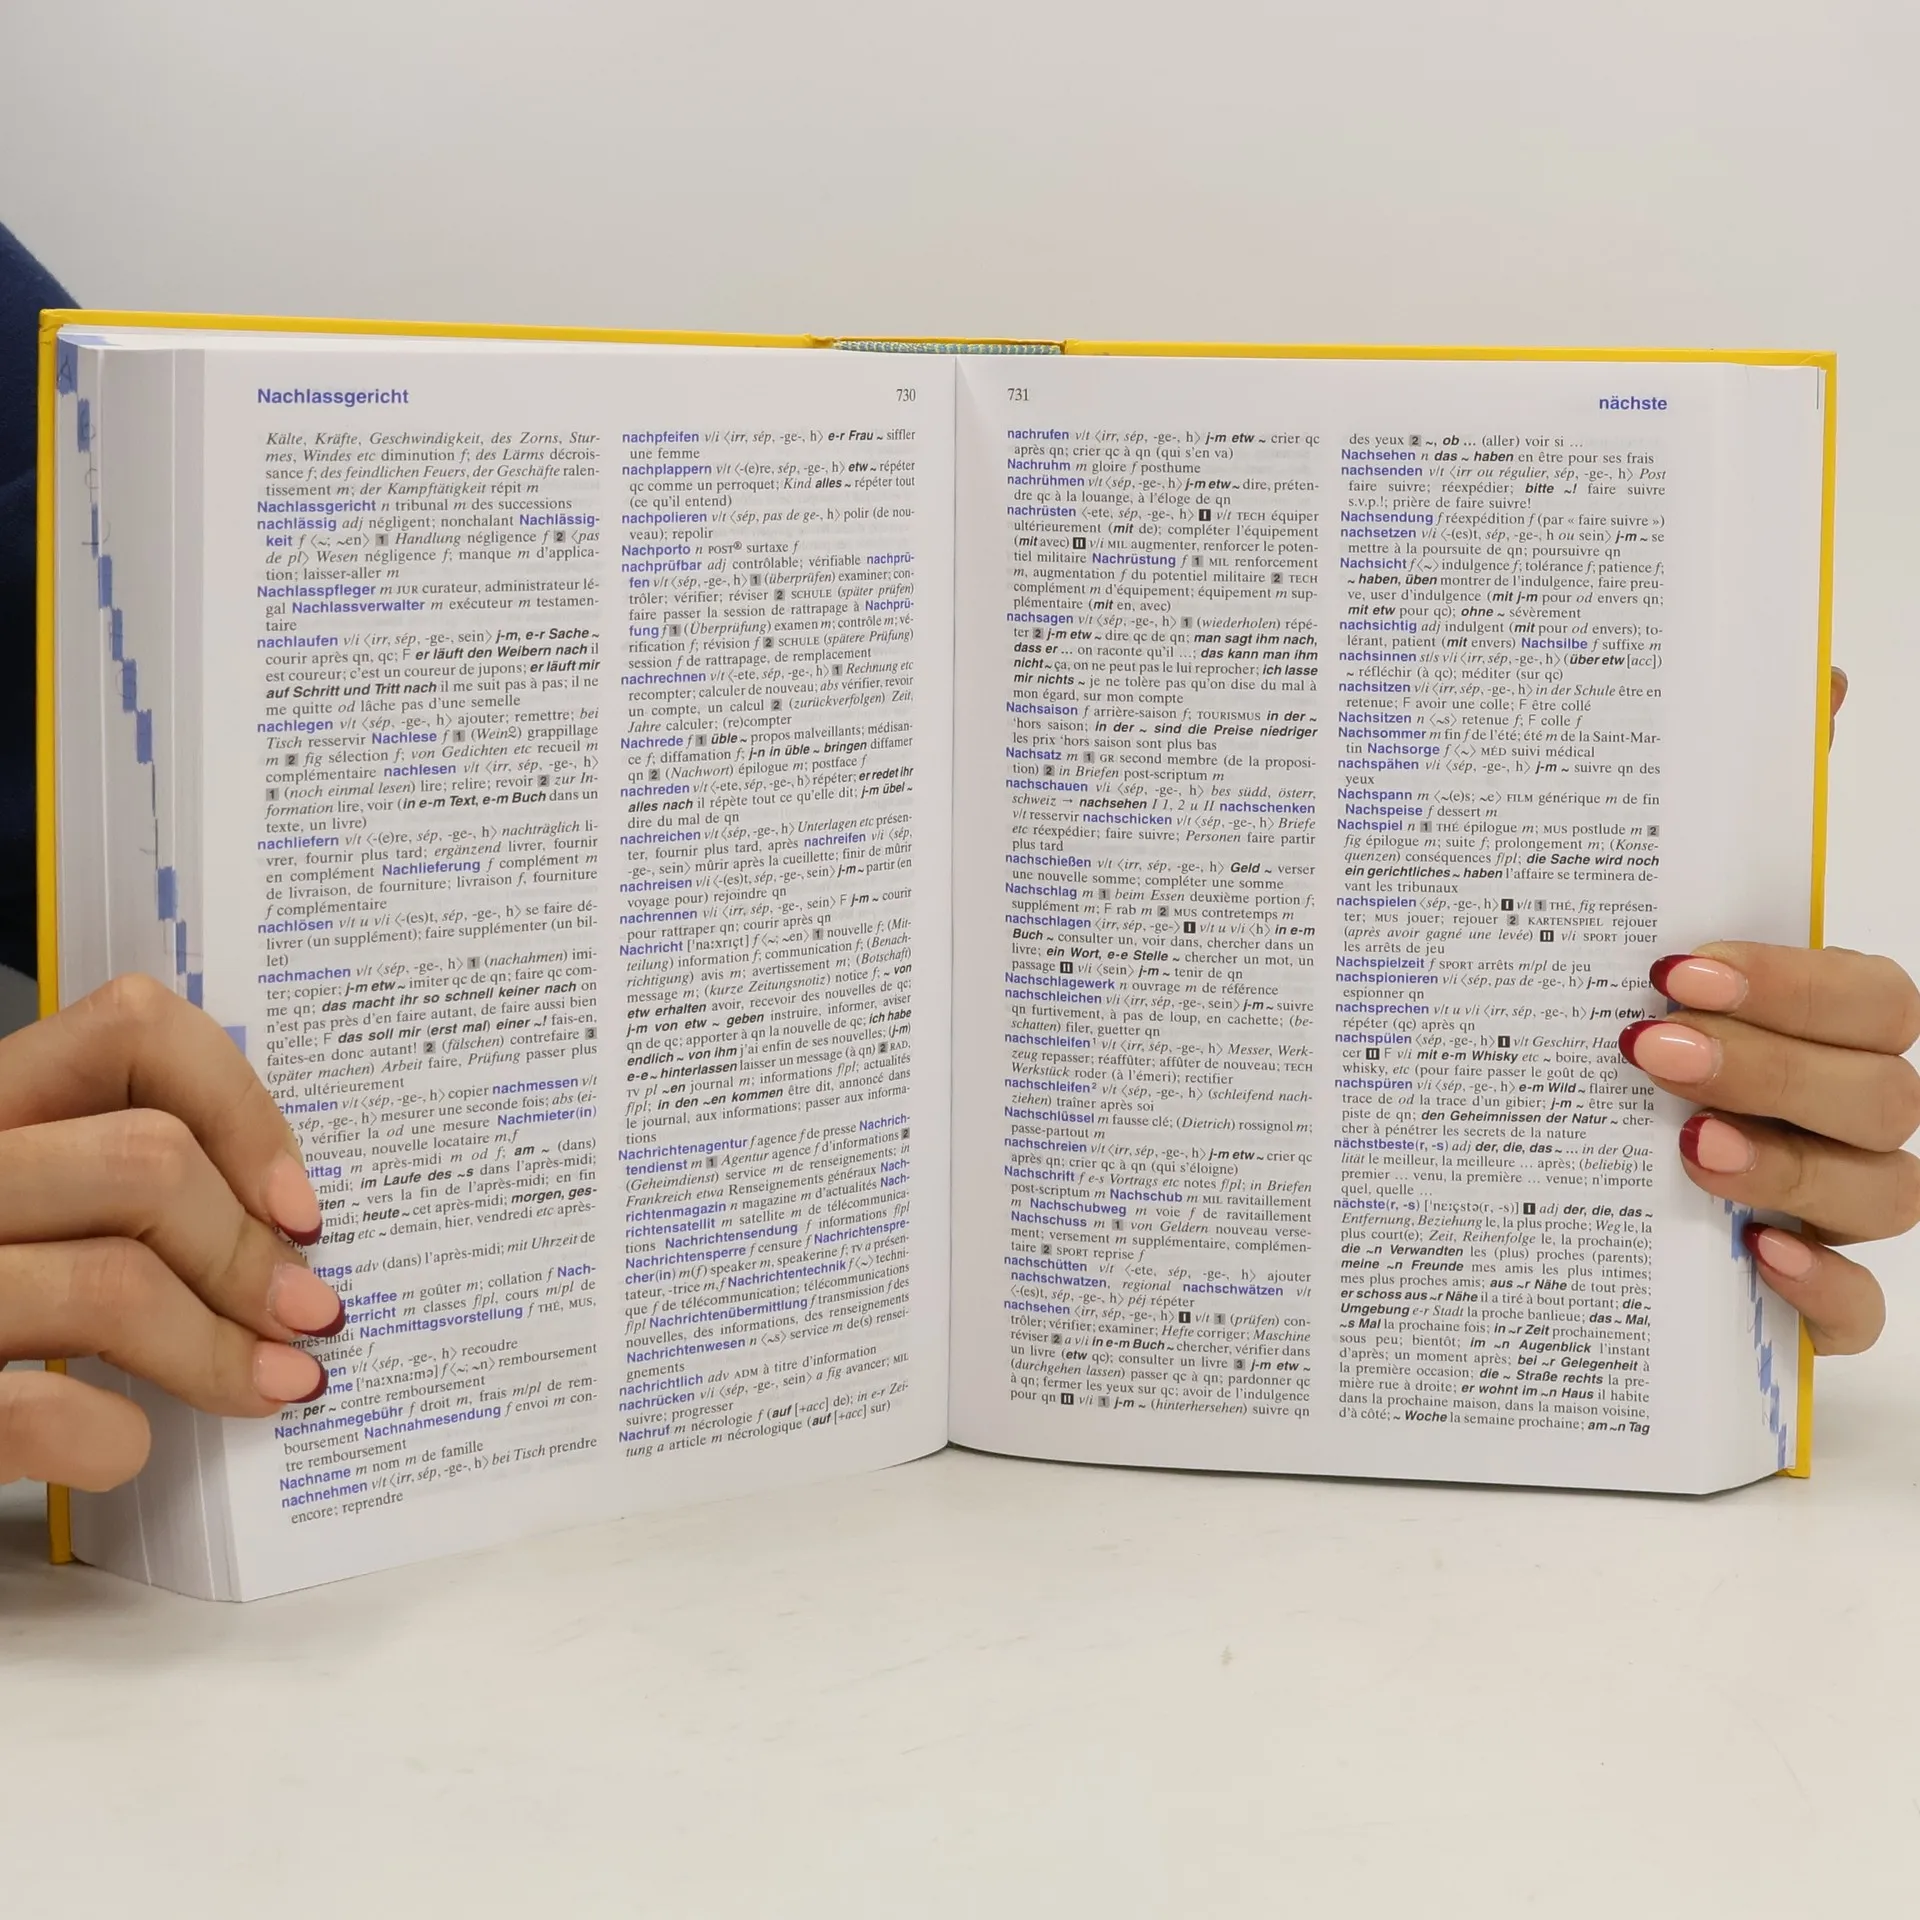 Nachlassgericht
730
Kälte, Kräfte, Geschwindigkeit, des Zorns, Stur-
mes, Windes etc diminution f; des Lärms décrois-
sance f; des feindlichen Feuers, der Geschäfte ralen-
tissement m; der Kampftätigkeit répit m
Nachlassgericht n tribunal m des successions
nachlässig adj négligent; nonchalant Nachlässig-
keit f ⟨~; ~en⟩ 1 Handlung négligence f 2 ⟨pas
de pl⟩ Wesen négligence f; manque m d'applica-
tion; laisser-aller m
Nachlasspfleger m JUR curateur, administrateur lé-
gal Nachlassverwalter m exécuteur m testamen-
taire
nachlaufen v/i ⟨irr, sép, -ge-, sein⟩ j-m, e-r Sache ~
courir après qn, qc; F er läuft den Weibern nach il
est coureur; c'est un coureur de jupons; er läuft mir
auf Schritt und Tritt nach il me suit pas à pas; il ne
me quitte od lâche pas d'une semelle
nachlegen v/t ⟨sép, -ge-, h⟩ ajouter; remettre; bei
Tisch resservir Nachlese f 1 (Wein2) grappillage
m 2 fig sélection f; von Gedichten etc recueil m
complémentaire nachlesen v/t ⟨irr, sép, -ge-, h⟩
1 (noch einmal lesen) lire; relire; revoir 2 zur In-
formation lire, voir (in e-m Text, e-m Buch dans un
texte, un livre)
nachliefern v/t ⟨-(e)re, sép, -ge-, h⟩ nachträglich li-
vrer, fournir plus tard; ergänzend livrer, fournir
en complément Nachlieferung f complément m
de livraison, de fourniture; livraison f, fourniture
f complémentaire
nachlösen v/t u v/i ⟨-(es)t, sép, -ge-, h⟩ se faire dé-
livrer (un supplément); faire supplémenter (un bil-
let)
nachmachen v/t ⟨sép, -ge-, h⟩ 1 (nachahmen) imi-
ter; copier; j-m etw ~ imiter qc de qn; faire qc com-
me qn; das macht ihr so schnell keiner nach on
n'est pas près d'en faire autant, de faire aussi bien
qu'elle; F das soll mir (erst mal) einer ~! fais-en,
faites-en donc autant! 2 (fälschen) contrefaire 3
(später machen) Arbeit faire, Prüfung passer plus
tard, ultérieurement
chmalen v/t ⟨sép, -ge-, h⟩ copier nachmessen v/t
sép, -ge-, h⟩ mesurer une seconde fois; abs (ei-
) vérifier la od une mesure Nachmieter(in)
nouveau, nouvelle locataire m,f
ittag m après-midi m od f; am ~ (dans)
-midi; im Laufe des ~s dans l'après-midi;
äten ~ vers la fin de l'après-midi; en fin
-midi; heute ~ cet après-midi; morgen, ges-
reitag etc ~ demain, hier, vendredi etc après-
ittags adv (dans) l'après-midi; mit Uhrzeit de
idi
gskaffee m goûter m; collation f Nach-
terricht m classes f/pl, cours m/pl de
près-midi Nachmittagsvorstellung f THÉ, MUS,
matinée f
en v/t ⟨sép, -ge-, h⟩ recoudre
hme ['na:xna:mə] f ⟨~; ~n⟩ remboursement
m; per ~ contre remboursement
Nachnahmegebühr f droit m, frais m/pl de rem-
boursement Nachnahmesendung f envoi m con-
tre remboursement
Nachname m nom m de famille
nachnehmen v/t ⟨irr, sép, -ge-, h⟩ bei Tisch prendre
encore; reprendre
nachpfeifen v/i ⟨irr, sép, -ge-, h⟩ e-r Frau ~ siffler
une femme
nachplappern v/t ⟨-(e)re, sép, -ge-, h⟩ etw ~ répéter
qc comme un perroquet; Kind alles ~ répéter tout
(ce qu'il entend)
nachpolieren v/t ⟨sép, pas de ge-, h⟩ polir (de nou-
veau); repolir
Nachporto n POST® surtaxe f
nachprüfbar adj contrôlable; vérifiable nachprü-
fen v/t ⟨sép, -ge-, h⟩ 1 (überprüfen) examiner; con-
trôler; vérifier; réviser 2 SCHULE (später prüfen)
faire passer la session de rattrapage à Nachprü-
fung f 1 (Überprüfung) examen m; contrôle m; vé-
rification f; révision f 2 SCHULE (spätere Prüfung)
session f de rattrapage, de remplacement
nachrechnen v/t ⟨-ete, sép, -ge-, h⟩ 1 Rechnung etc
recompter; calculer de nouveau; abs vérifier, revoir
un compte, un calcul 2 (zurückverfolgen) Zeit,
Jahre calculer; (re)compter
Nachrede f 1 üble ~ propos malveillants; médisan-
ce f; diffamation f; j-n in üble ~ bringen diffamer
qn 2 (Nachwort) épilogue m; postface f
nachreden v/t ⟨-ete, sép, -ge-, h⟩ répéter; er redet ihr
alles nach il répète tout ce qu'elle dit; j-m übel ~
dire du mal de qn
nachreichen v/t ⟨sép, -ge-, h⟩ Unterlagen etc présen-
ter, fournir plus tard, après nachreifen v/i ⟨sép,
-ge-, sein⟩ mûrir après la cueillette; finir de mûrir
nachreisen v/i ⟨-(es)t, sép, -ge-, sein⟩ j-m ~ partir (en
voyage pour) rejoindre qn
nachrennen v/i ⟨irr, sép, -ge-, sein⟩ F j-m ~ courir
pour rattraper qn; courir après qn
Nachricht ['na:xrıçt] f ⟨~; ~en⟩ 1 nouvelle f; (Mit-
teilung) information f; communication f; (Benach-
richtigung) avis m; avertissement m; (Botschaft)
message m; (kurze Zeitungsnotiz) notice f; ~ von
etw erhalten avoir, recevoir des nouvelles de qc;
j-m von etw ~ geben instruire, informer, aviser
qn de qc; apporter à qn la nouvelle de qc; ich habe
endlich ~ von ihm j'ai enfin de ses nouvelles; (j-m)
e-e ~ hinterlassen laisser un message (à qn) 2 RAD,
TV pl ~en journal m; informations f/pl; actualités
f/pl; in den ~en kommen être dit, annoncé dans
le journal, aux informations; passer aux informa-
tions
Nachrichtenagentur f agence f de presse Nachrich-
tendienst m 1 Agentur agence f d'informations 2
(Geheimdienst) service m de renseignements; in
Frankreich etwa Renseignements généraux Nach-
richtenmagazin n magazine m d'actualités Nach-
richtensatellit m satellite m de télécommunica-
tions Nachrichtensendung f informations f/pl
Nachrichtensperre f censure f Nachrichtenspre-
cher(in) m(f) speaker m, speakerine f; TV a présen-
tateur, -trice m,f Nachrichtentechnik f ⟨~⟩ techni-
que f de télécommunication; télécommunications
f/pl Nachrichtenübermittlung f transmission f des
nouvelles, des informations, des renseignements
Nachrichtenwesen n ⟨~s⟩ service m de(s) rensei-
gnements
nachrichtlich adv ADM à titre d'information
nachrücken v/i ⟨sép, -ge-, sein⟩ a fig avancer; MIL
suivre; progresser
Nachruf m nécrologie f (auf [+acc] de); in e-r Zei-
tung a article m nécrologique (auf [+acc] sur)
731
nächste
nachrufen v/t ⟨irr, sép, -ge-, h⟩ j-m etw ~ crier qc
après qn; crier qc à qn (qui s'en va)
Nachruhm m gloire f posthume
nachrühmen v/t ⟨sép, -ge-, h⟩ j-m etw ~ dire, préten-
dre qc à la louange, à l'éloge de qn
nachrüsten ⟨-ete, sép, -ge-, h⟩ I v/t TECH équiper
ultérieurement (mit de); compléter l'équipement
(mit avec) II v/i MIL augmenter, renforcer le poten-
tiel militaire Nachrüstung f 1 MIL renforcement
m, augmentation f du potentiel militaire 2 TECH
complément m d'équipement; équipement m sup-
plémentaire (mit en, avec)
nachsagen v/t ⟨sép, -ge-, h⟩ 1 (wiederholen) répé-
ter 2 j-m etw ~ dire qc de qn; man sagt ihm nach,
dass er ... on raconte qu'il ...; das kann man ihm
nicht ~ ça, on ne peut pas le lui reprocher; ich lasse
mir nichts ~ je ne tolère pas qu'on dise du mal à
mon égard, sur mon compte
Nachsaison f arrière-saison f; TOURISMUS in der ~
'hors saison; in der ~ sind die Preise niedriger
les prix 'hors saison sont plus bas
Nachsatz m 1 GR second membre (de la proposi-
tion) 2 in Briefen post-scriptum m
nachschauen v/i ⟨sép, -ge-, h⟩ bes südd, österr,
schweiz → nachsehen I 1, 2 u II nachschenken
v/t resservir nachschicken v/t ⟨sép, -ge-, h⟩ Briefe
etc réexpédier; faire suivre; Personen faire partir
plus tard
nachschießen v/t ⟨irr, sép, -ge-, h⟩ Geld ~ verser
une nouvelle somme; compléter une somme
Nachschlag m 1 beim Essen deuxième portion f;
supplément m; F rab m 2 MUS contretemps m
nachschlagen ⟨irr, sép, -ge-⟩ I v/t u v/i ⟨h⟩ in e-m
Buch ~ consulter un, voir dans, chercher dans un
livre; ein Wort, e-e Stelle ~ chercher un mot, un
passage II v/i ⟨sein⟩ j-m ~ tenir de qn
Nachschlagewerk n ouvrage m de référence
nachschleichen v/i ⟨irr, sép, -ge-, sein⟩ j-m ~ suivre
qn furtivement, à pas de loup, en cachette; (be-
schatten) filer, guetter qn
nachschleifen¹ v/t ⟨irr, sép, -ge-, h⟩ Messer, Werk-
zeug repasser; réaffûter; affûter de nouveau; TECH
Werkstück roder (à l'émeri); rectifier
nachschleifen² v/t ⟨sép, -ge-, h⟩ (schleifend nach-
ziehen) traîner après soi
Nachschlüssel m fausse clé; (Dietrich) rossignol m;
passe-partout m
nachschreien v/t ⟨irr, sép, -ge-, h⟩ j-m etw ~ crier qc
après qn; crier qc à qn (qui s'éloigne)
Nachschrift f e-s Vortrags etc notes f/pl; in Briefen
post-scriptum m Nachschub m MIL ravitaillement
m Nachschubweg m voie f de ravitaillement
Nachschuss m 1 von Geldern nouveau verse-
ment; versement m supplémentaire, complémen-
taire 2 SPORT reprise f
nachschütten v/t ⟨-ete, sép, -ge-, h⟩ ajouter
nachschwatzen, regional nachschwätzen v/t
⟨-(es)t, sép, -ge-, h⟩ péj répéter
nachsehen ⟨irr, sép, -ge-, h⟩ I v/t 1 (prüfen) con-
trôler; vérifier; examiner; Hefte corriger; Maschine
réviser 2 a v/i in e-m Buch ~ chercher, vérifier dans
un livre (etw qc); consulter un livre 3 j-m etw ~
(durchgehen lassen) passer qc à qn; pardonner qc
à qn; fermer les yeux sur qc; avoir de l'indulgence
pour qn II v/i 1 j-m ~ (hinterhersehen) suivre qn
des yeux 2 ~, ob ... (aller) voir si ...
Nachsehen n das ~ haben en être pour ses frais
nachsenden v/t ⟨irr ou régulier, sép, -ge-, h⟩ Post
faire suivre; réexpédier; bitte ~! faire suivre
s.v.p.!; prière de faire suivre!
Nachsendung f réexpédition f (par « faire suivre »)
nachsetzen v/i ⟨-(es)t, sép, -ge-, h ou sein⟩ j-m ~ se
mettre à la poursuite de qn; poursuivre qn
Nachsicht f ⟨~⟩ indulgence f; tolérance f; patience f;
~ haben, üben montrer de l'indulgence, faire preu-
ve, user d'indulgence (mit j-m pour od envers qn;
mit etw pour qc); ohne ~ sévèrement
nachsichtig adj indulgent (mit pour od envers); to-
lérant, patient (mit envers) Nachsilbe f suffixe m
nachsinnen st/s v/i ⟨irr, sép, -ge-, h⟩ (über etw [acc])
~ réfléchir (à qc); méditer (sur qc)
nachsitzen v/i ⟨irr, sép, -ge-, h⟩ in der Schule être en
retenue; F avoir une colle; F être collé
Nachsitzen n ⟨~s⟩ retenue f; F colle f
Nachsommer m fin f de l'été; été m de la Saint-Mar-
tin Nachsorge f ⟨~⟩ MÉD suivi médical
nachspähen v/i ⟨sép, -ge-, h⟩ j-m ~ suivre qn des
yeux
Nachspann m ⟨~(e)s; ~e⟩ FILM générique m de fin
Nachspeise f dessert m
Nachspiel n 1 THÉ épilogue m; MUS postlude m 2
fig épilogue m; suite f; prolongement m; (Konse-
quenzen) conséquences f/pl; die Sache wird noch
ein gerichtliches ~ haben l'affaire se terminera de-
vant les tribunaux
nachspielen ⟨sép, -ge-, h⟩ I v/t 1 THÉ, fig représen-
ter; MUS jouer; rejouer 2 KARTENSPIEL rejouer
(après avoir gagné une levée) II v/i SPORT jouer
les arrêts de jeu
Nachspielzeit f SPORT arrêts m/pl de jeu
nachspionieren v/i ⟨sép, pas de -ge-, h⟩ j-m ~ épier
espionner qn
nachsprechen v/t u v/i ⟨irr, sép, -ge-, h⟩ j-m (etw) ~
répéter (qc) après qn
nachspülen ⟨sép, -ge-, h⟩ I v/t Geschirr, Haa
cer II F v/i mit e-m Whisky etc ~ boire, avale
whisky, etc (pour faire passer le goût de qc)
nachspüren v/i ⟨sép, -ge-, h⟩ e-m Wild ~ flairer une
trace de od la trace d'un gibier; j-m ~ être sur la
piste de qn; den Geheimnissen der Natur ~ cher-
cher à pénétrer les secrets de la nature
nächstbeste(r, -s) adj der, die, das ~ ... in der Qua-
lität le meilleur, la meilleure ... après; (beliebig) le
premier ... venu, la première ... venue; n'importe
quel, quelle ...
nächste(r, -s) ['nɛ:çstə(r, -s)] I adj der, die, das ~
Entfernung, Beziehung le, la plus proche; Weg le, la
plus court(e); Zeit, Reihenfolge le, la prochain(e);
die ~n Verwandten les (plus) proches (parents);
meine ~n Freunde mes amis les plus intimes;
mes plus proches amis; aus ~r Nähe de tout près;
er schoss aus ~r Nähe il a tiré à bout portant; die ~
Umgebung e-r Stadt la proche banlieue; das ~ Mal,
~s Mal la prochaine fois; in ~r Zeit prochainement;
sous peu; bientôt; im ~n Augenblick l'instant
d'après; un moment après; bei ~r Gelegenheit à
la première occasion; die ~ Straße rechts la pre-
mière rue à droite; er wohnt im ~n Haus il habite
dans la prochaine maison, dans la maison voisine,
d'à côté; ~ Woche la semaine prochaine; am ~n Tag